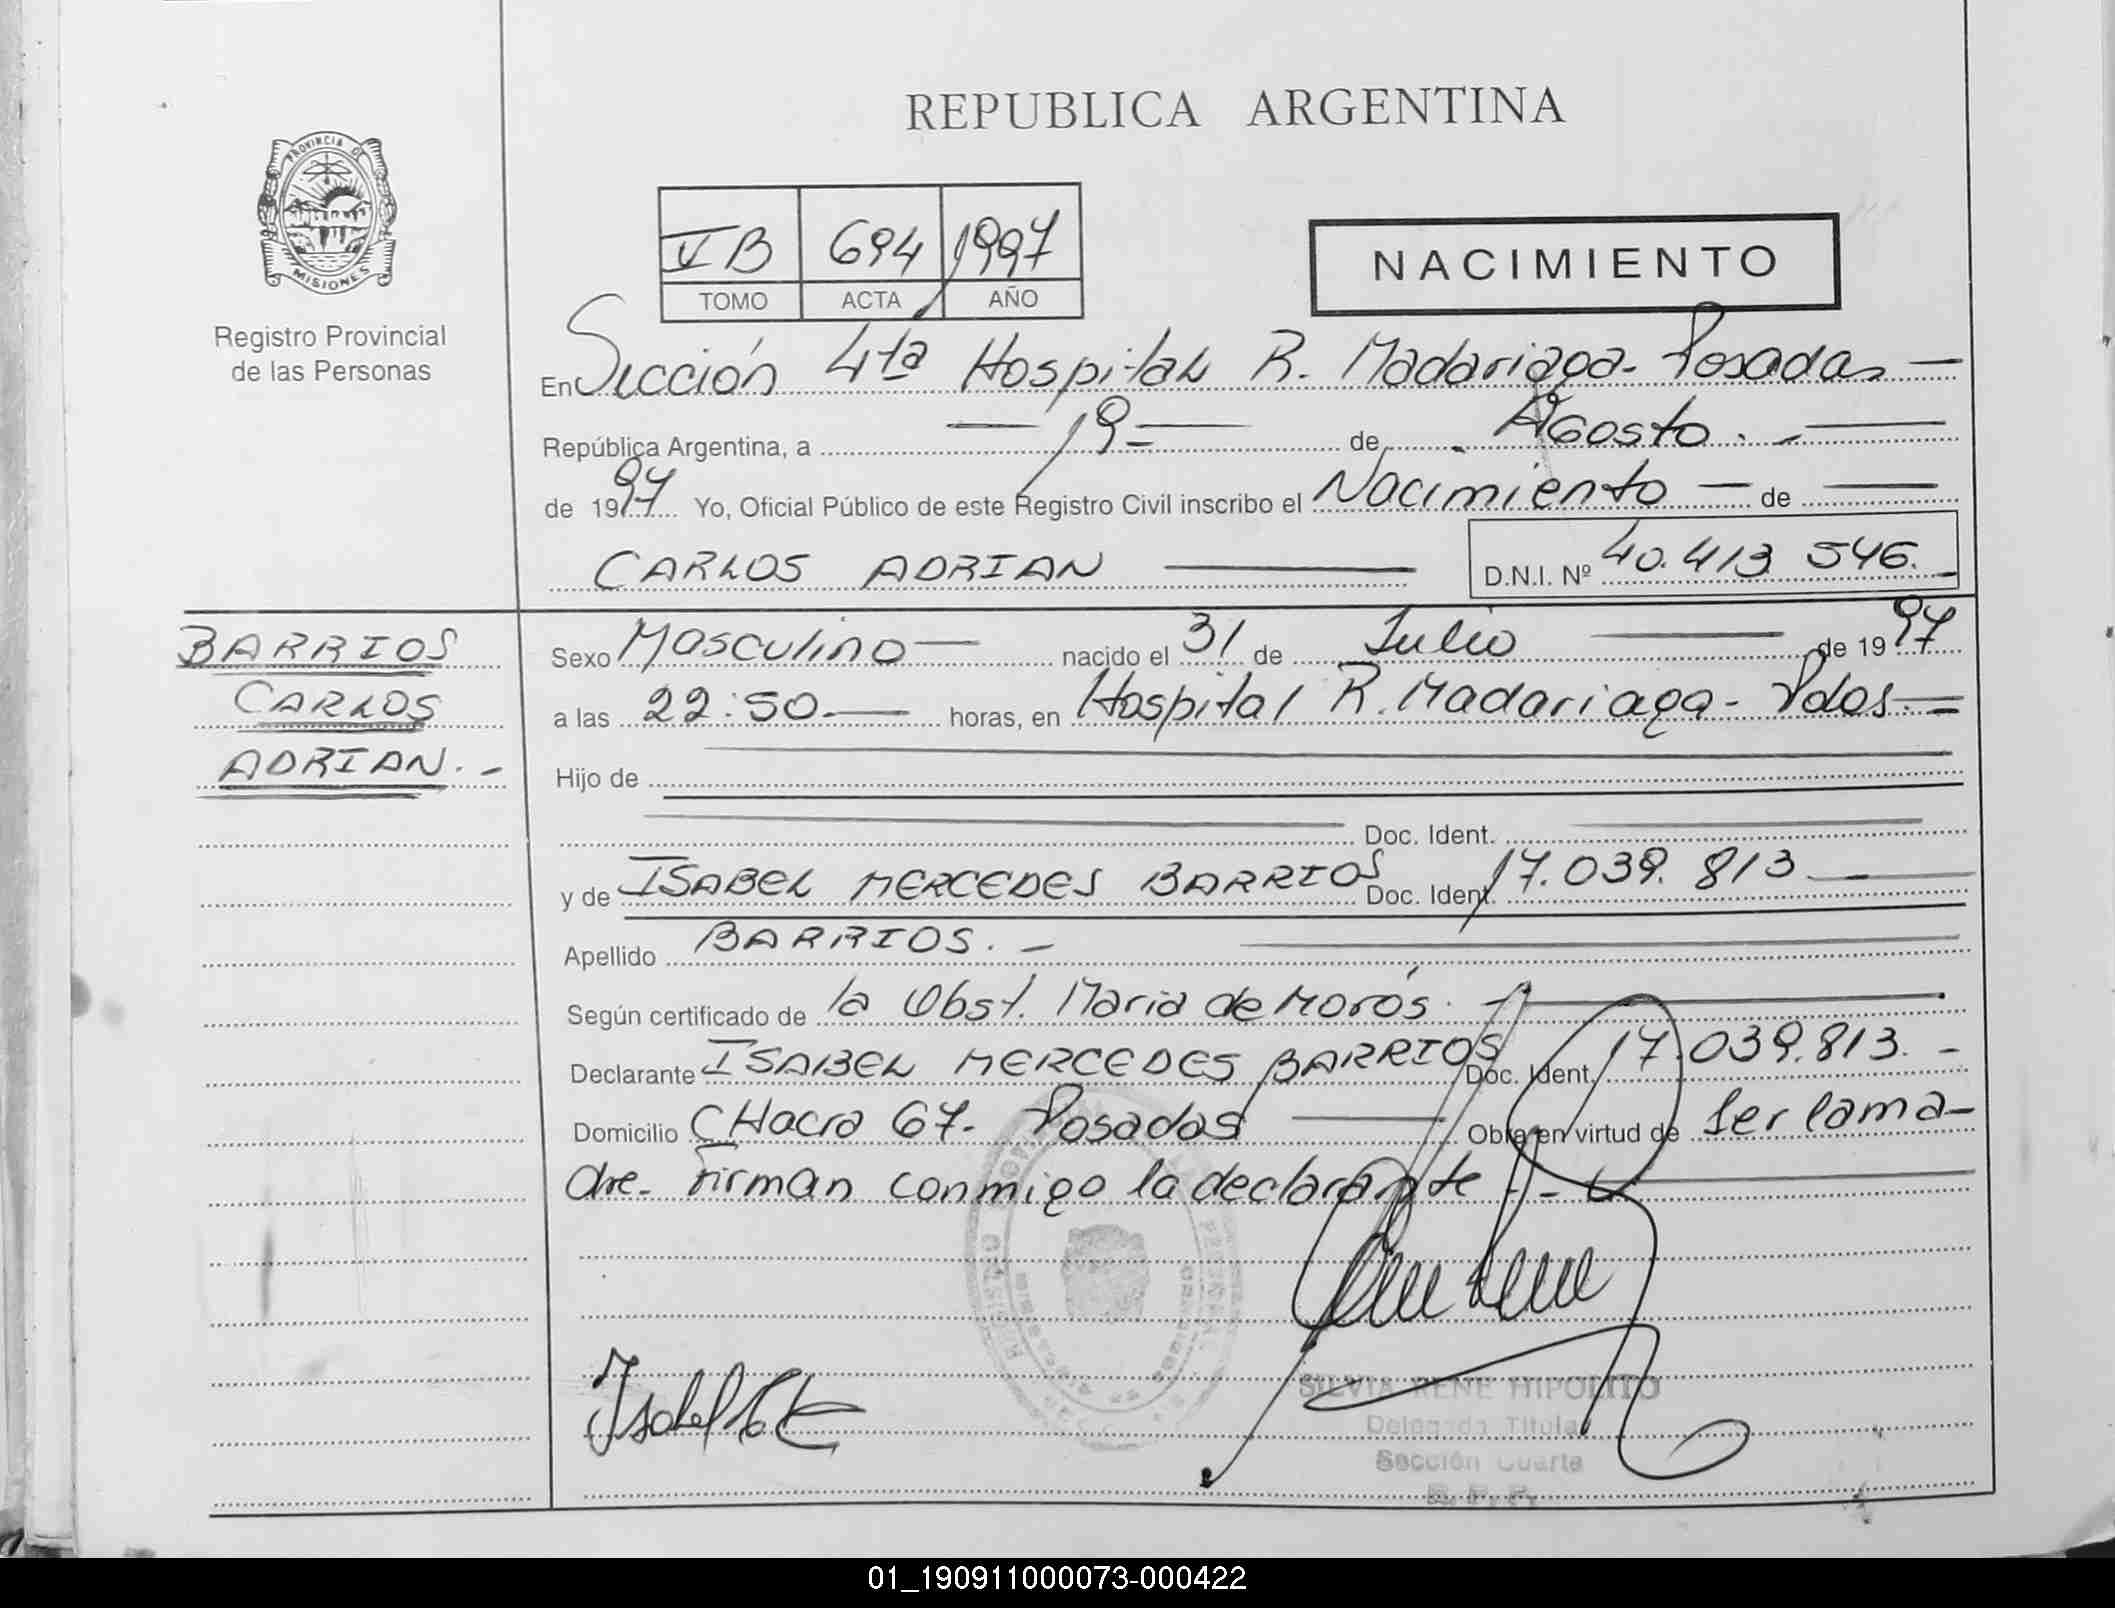 REPUBLICA ARGENTINA
PROVINCIA DE
MISIONES
Registro Provincial
de las Personas
VB 694 1997
TOMO ACTA AÑO
NACIMIENTO
En Sección 4ta Hospital R. Madariaga - Posadas —
República Argentina, a — 19 — de Agosto . - —
de 1997 Yo, Oficial Público de este Registro Civil inscribo el Nacimiento — de —
CARLOS ADRIAN — D.N.I. Nº 40.413.546.
BARRIOS
CARLOS
ADRIAN. -
Sexo Masculino — nacido el 31 de Julio — de 1997
a las 22:50.— horas, en Hospital R. Madariaga - Pdas. =
Hijo de —
— Doc. Ident. —
y de ISABEL MERCEDES BARRIOS Doc. Ident. 17.039.813 —
Apellido BARRIOS. - —
Según certificado de la Obst. Maria de Morós. —
Declarante ISABEL MERCEDES BARRIOS Doc. Ident. 17.039.813. -
Domicilio CHacra 67. Posadas — Obra en virtud de Ser la ma-
dre. Firman conmigo la declarante . - —
SILVIA RENE HIPOLITO
Delegada Titular
Sección Cuarta
R. P. P.
01_190911000073-000422